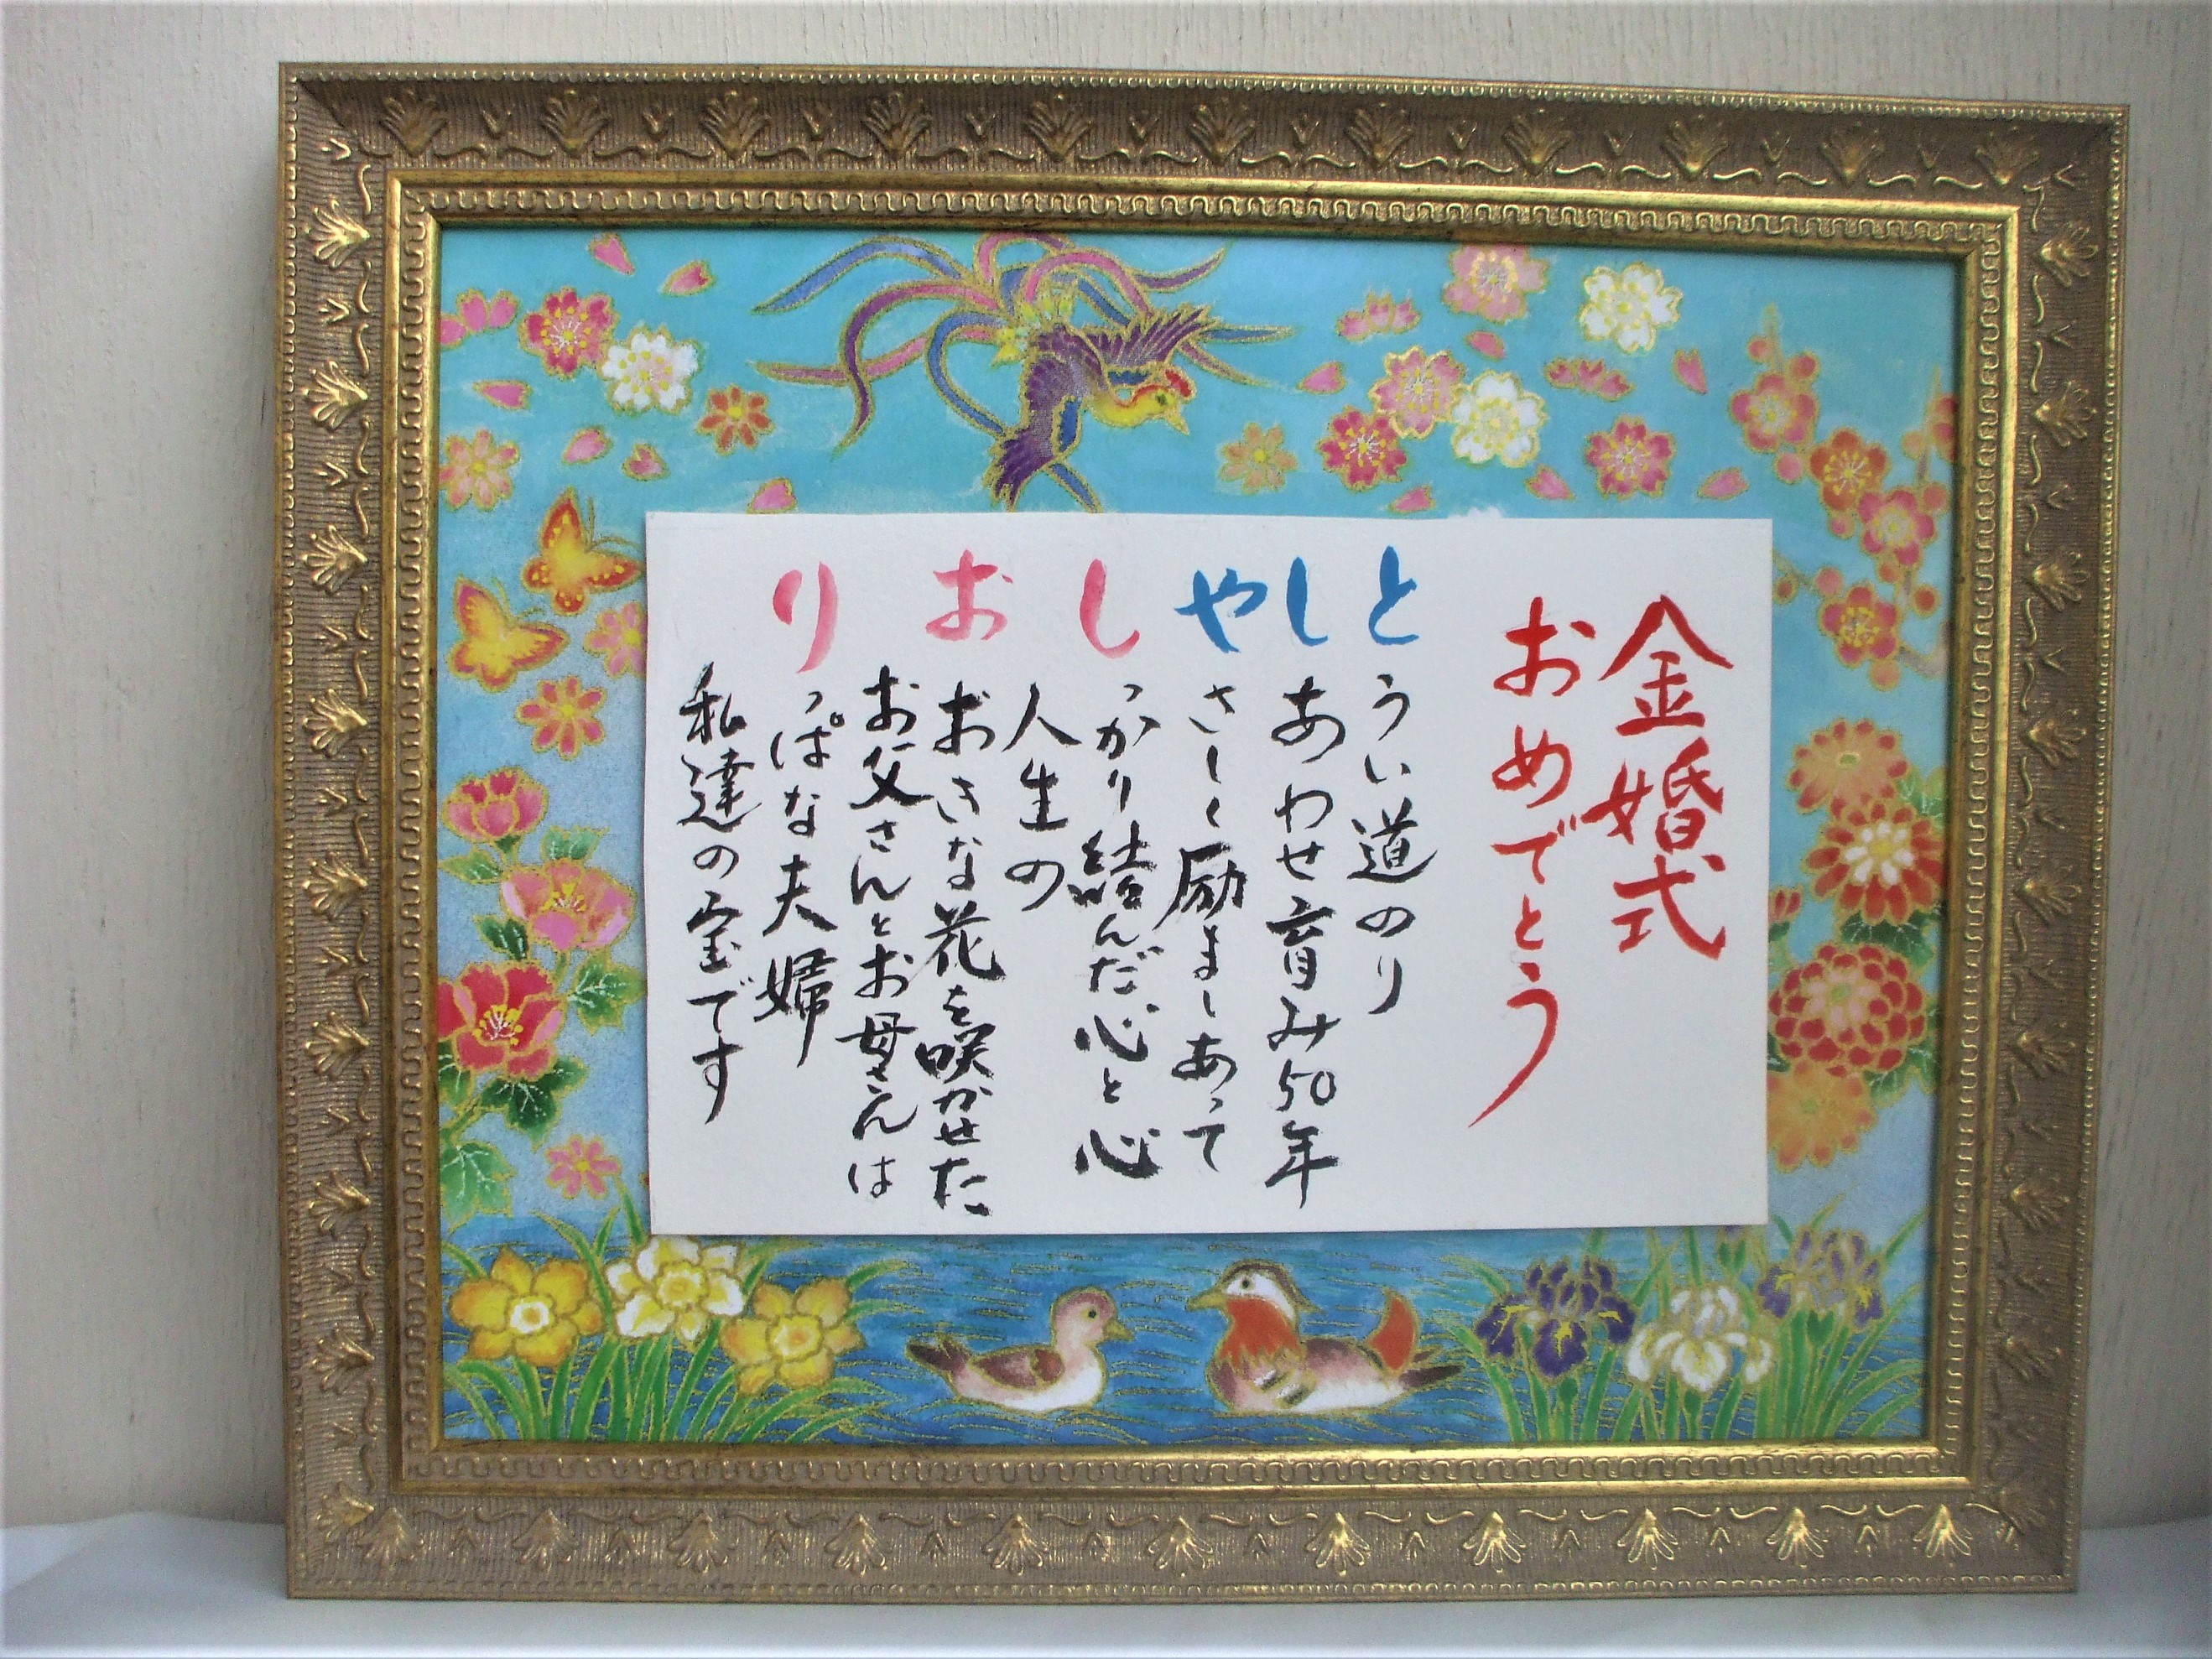 金婚式
おめでとう
とうい道のり
しあわせ育み50年
やさしく励ましあって
しっかり結んだ心と心
人生の
おおきな花を咲かせた
お父さんとお母さんは
りっぱな夫婦
私達の宝です